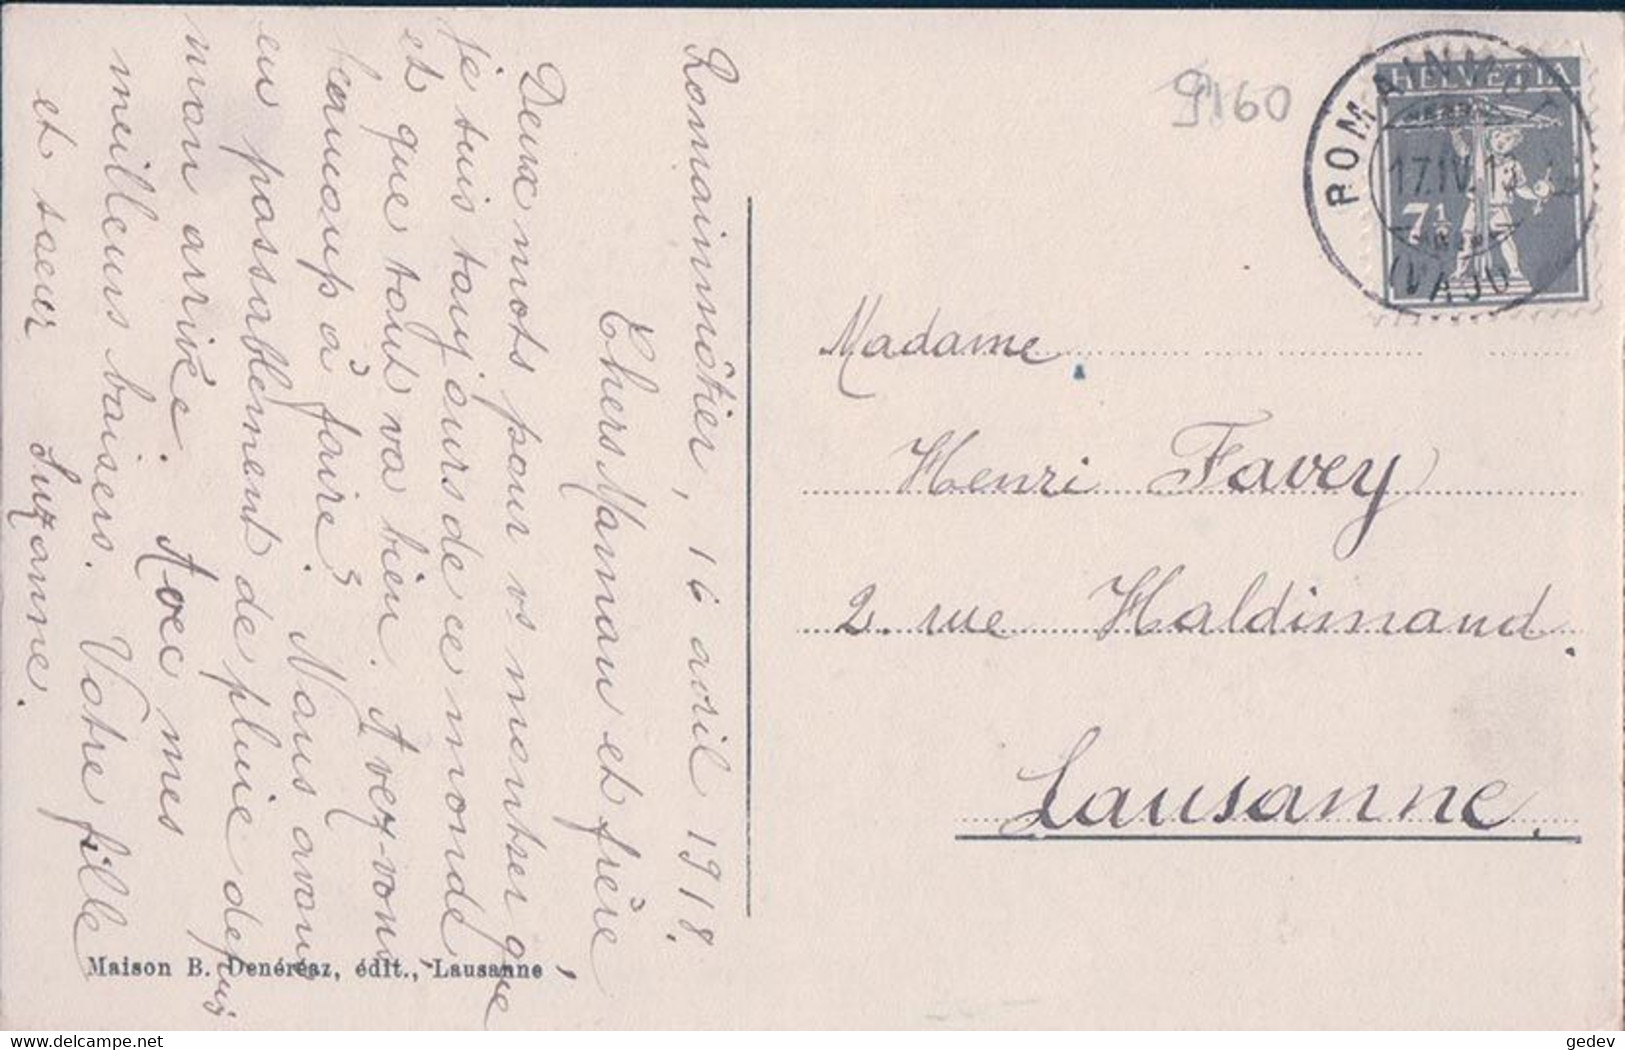 Romainmôtier, 16 avril 1918.
Chers Maman et frère
Deux mots pour vs montrer que
je suis toujours de ce monde,
et que tout va bien. Avez-vous
beaucoup à faire? Nous avons
eu passablement de pluie depuis
mon arrivée. Avec mes
meilleurs baisers. Votre fille
et sœur Suzanne.
Maison B. Denéréaz, édit., Lausanne
9160
HELVETIA
7½
ROMAINMOTIER
17.IV.1
(VAUD)
Madame
Henri Favey
2. rue Haldimand.
Lausanne.
www.delcampe.net
gedev